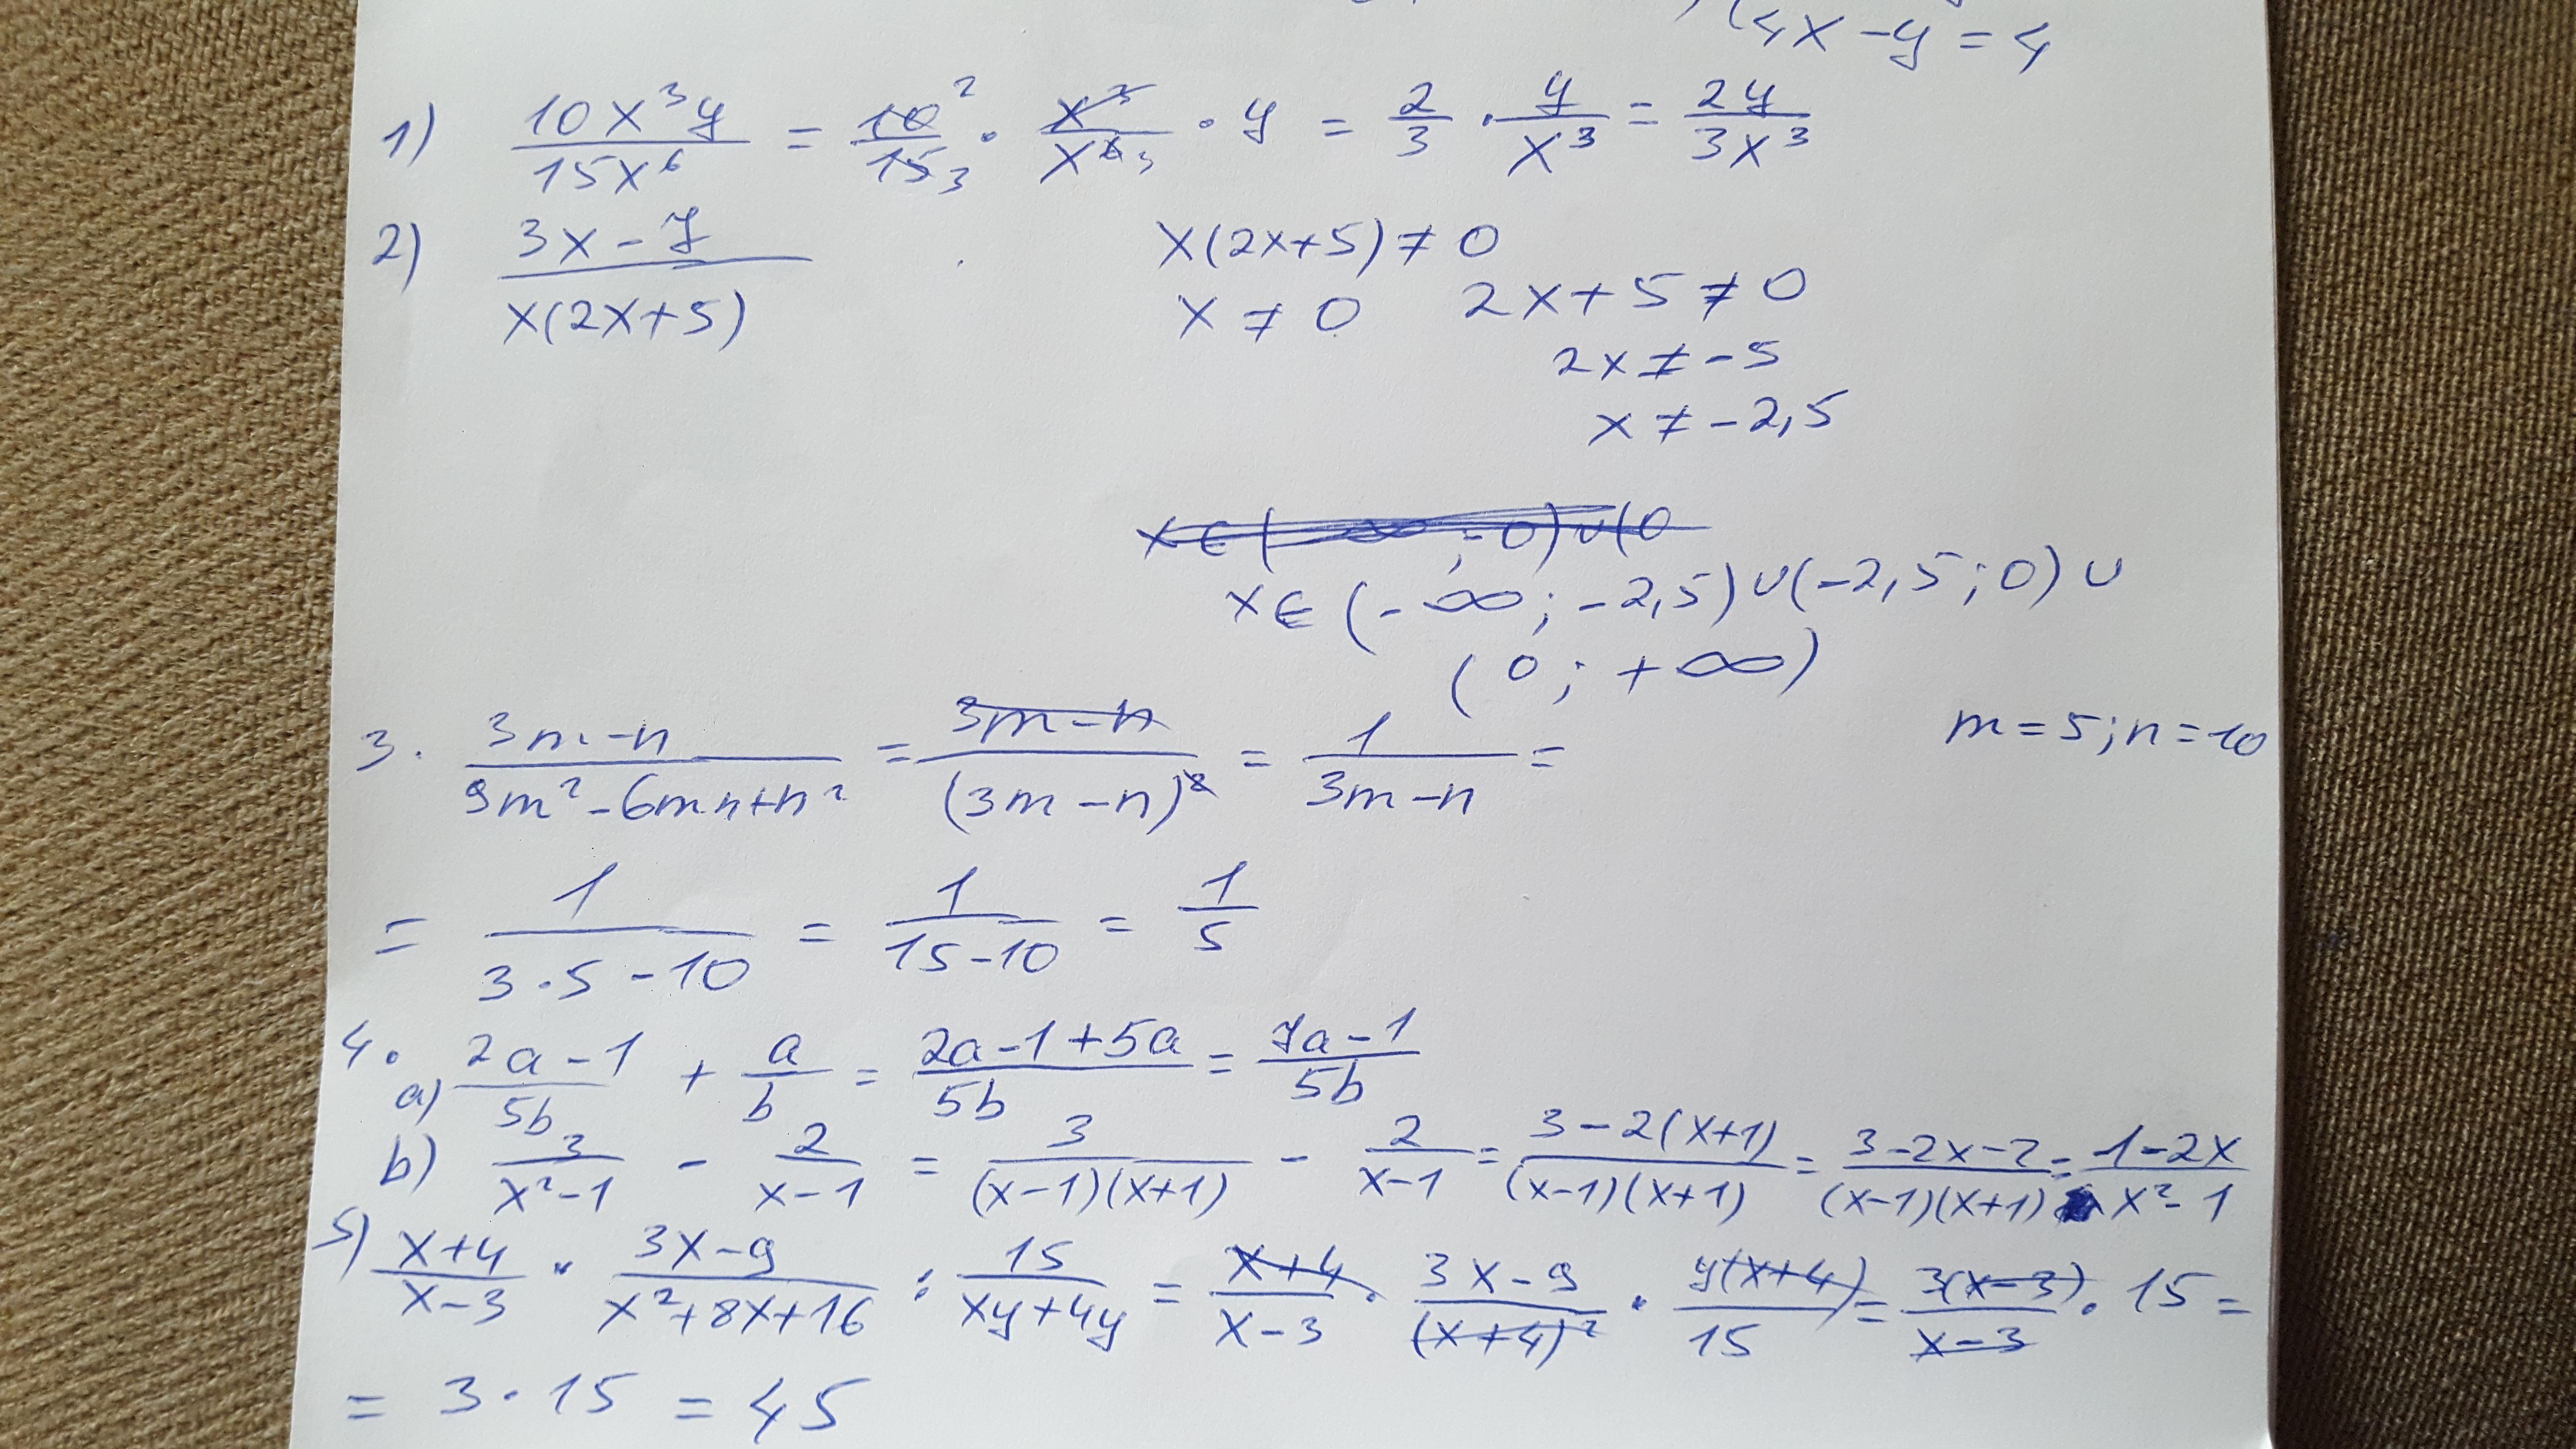 (4x-y=4
1) 10x³y/15x⁶ = 10²/15₃ · x³/x⁶³ · y = 2/3 · y/x³ = 2y/3x³
2) 3x-7/x(2x+5) x(2x+5)≠0
x≠0 2x+5≠0
2x≠-5
x≠-2,5
x∈(-∞;0)∪(0
x∈(-∞;-2,5)∪(-2,5;0)∪
(0;+∞)
3. 3m-n/9m²-6mn+n² = 3m-n/(3m-n)² = 1/3m-n = m=5;n=10
= 1/3·5-10 = 1/15-10 = 1/5
4. a) 2a-1/5b + a/b = 2a-1+5a/5b = 7a-1/5b
b) 3/x²-1 - 2/x-1 = 3/(x-1)(x+1) - 2/x-1 = 3-2(x+1)/(x-1)(x+1) = 3-2x-2/(x-1)(x+1) = 1-2x/x²-1
5) x+4/x-3 · 3x-9/x²+8x+16 : 15/xy+4y = x+4/x-3 · 3x-9/(x+4)² · y(x+4)/15 = 3(x-3)/x-3 · 15 =
= 3·15 = 45